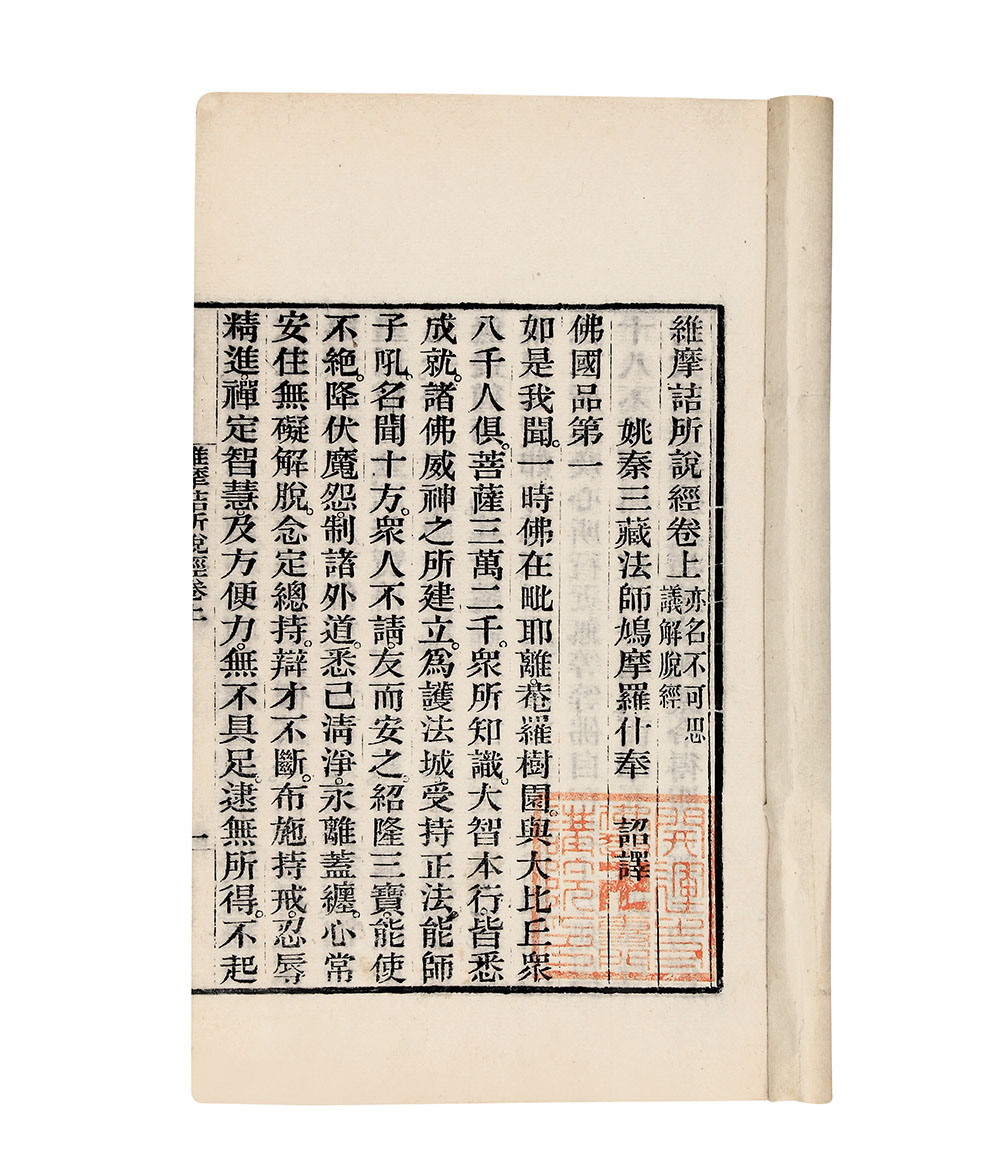 維摩詰所說經卷上亦名不可思議解脫經
姚秦三藏法師鳩摩羅什奉 詔譯
佛國品第一
如是我聞。一時佛在毗耶離。菴羅樹園。與大比丘衆
八千人俱。菩薩三萬二千。衆所知識。大智本行。皆悉
成就。諸佛威神之所建立。爲護法城。受持正法。能師
子吼。名聞十方。衆人不請。友而安之。紹隆三寶。能使
不絶。降伏魔怨。制諸外道。悉已清淨。永離蓋纏。心常
安住無礙解脫。念定總持。辯才不斷。布施持戒。忍辱
精進。禪定智慧。及方便力。無不具足。逮無所得。不起
維摩詰所說經卷上 一